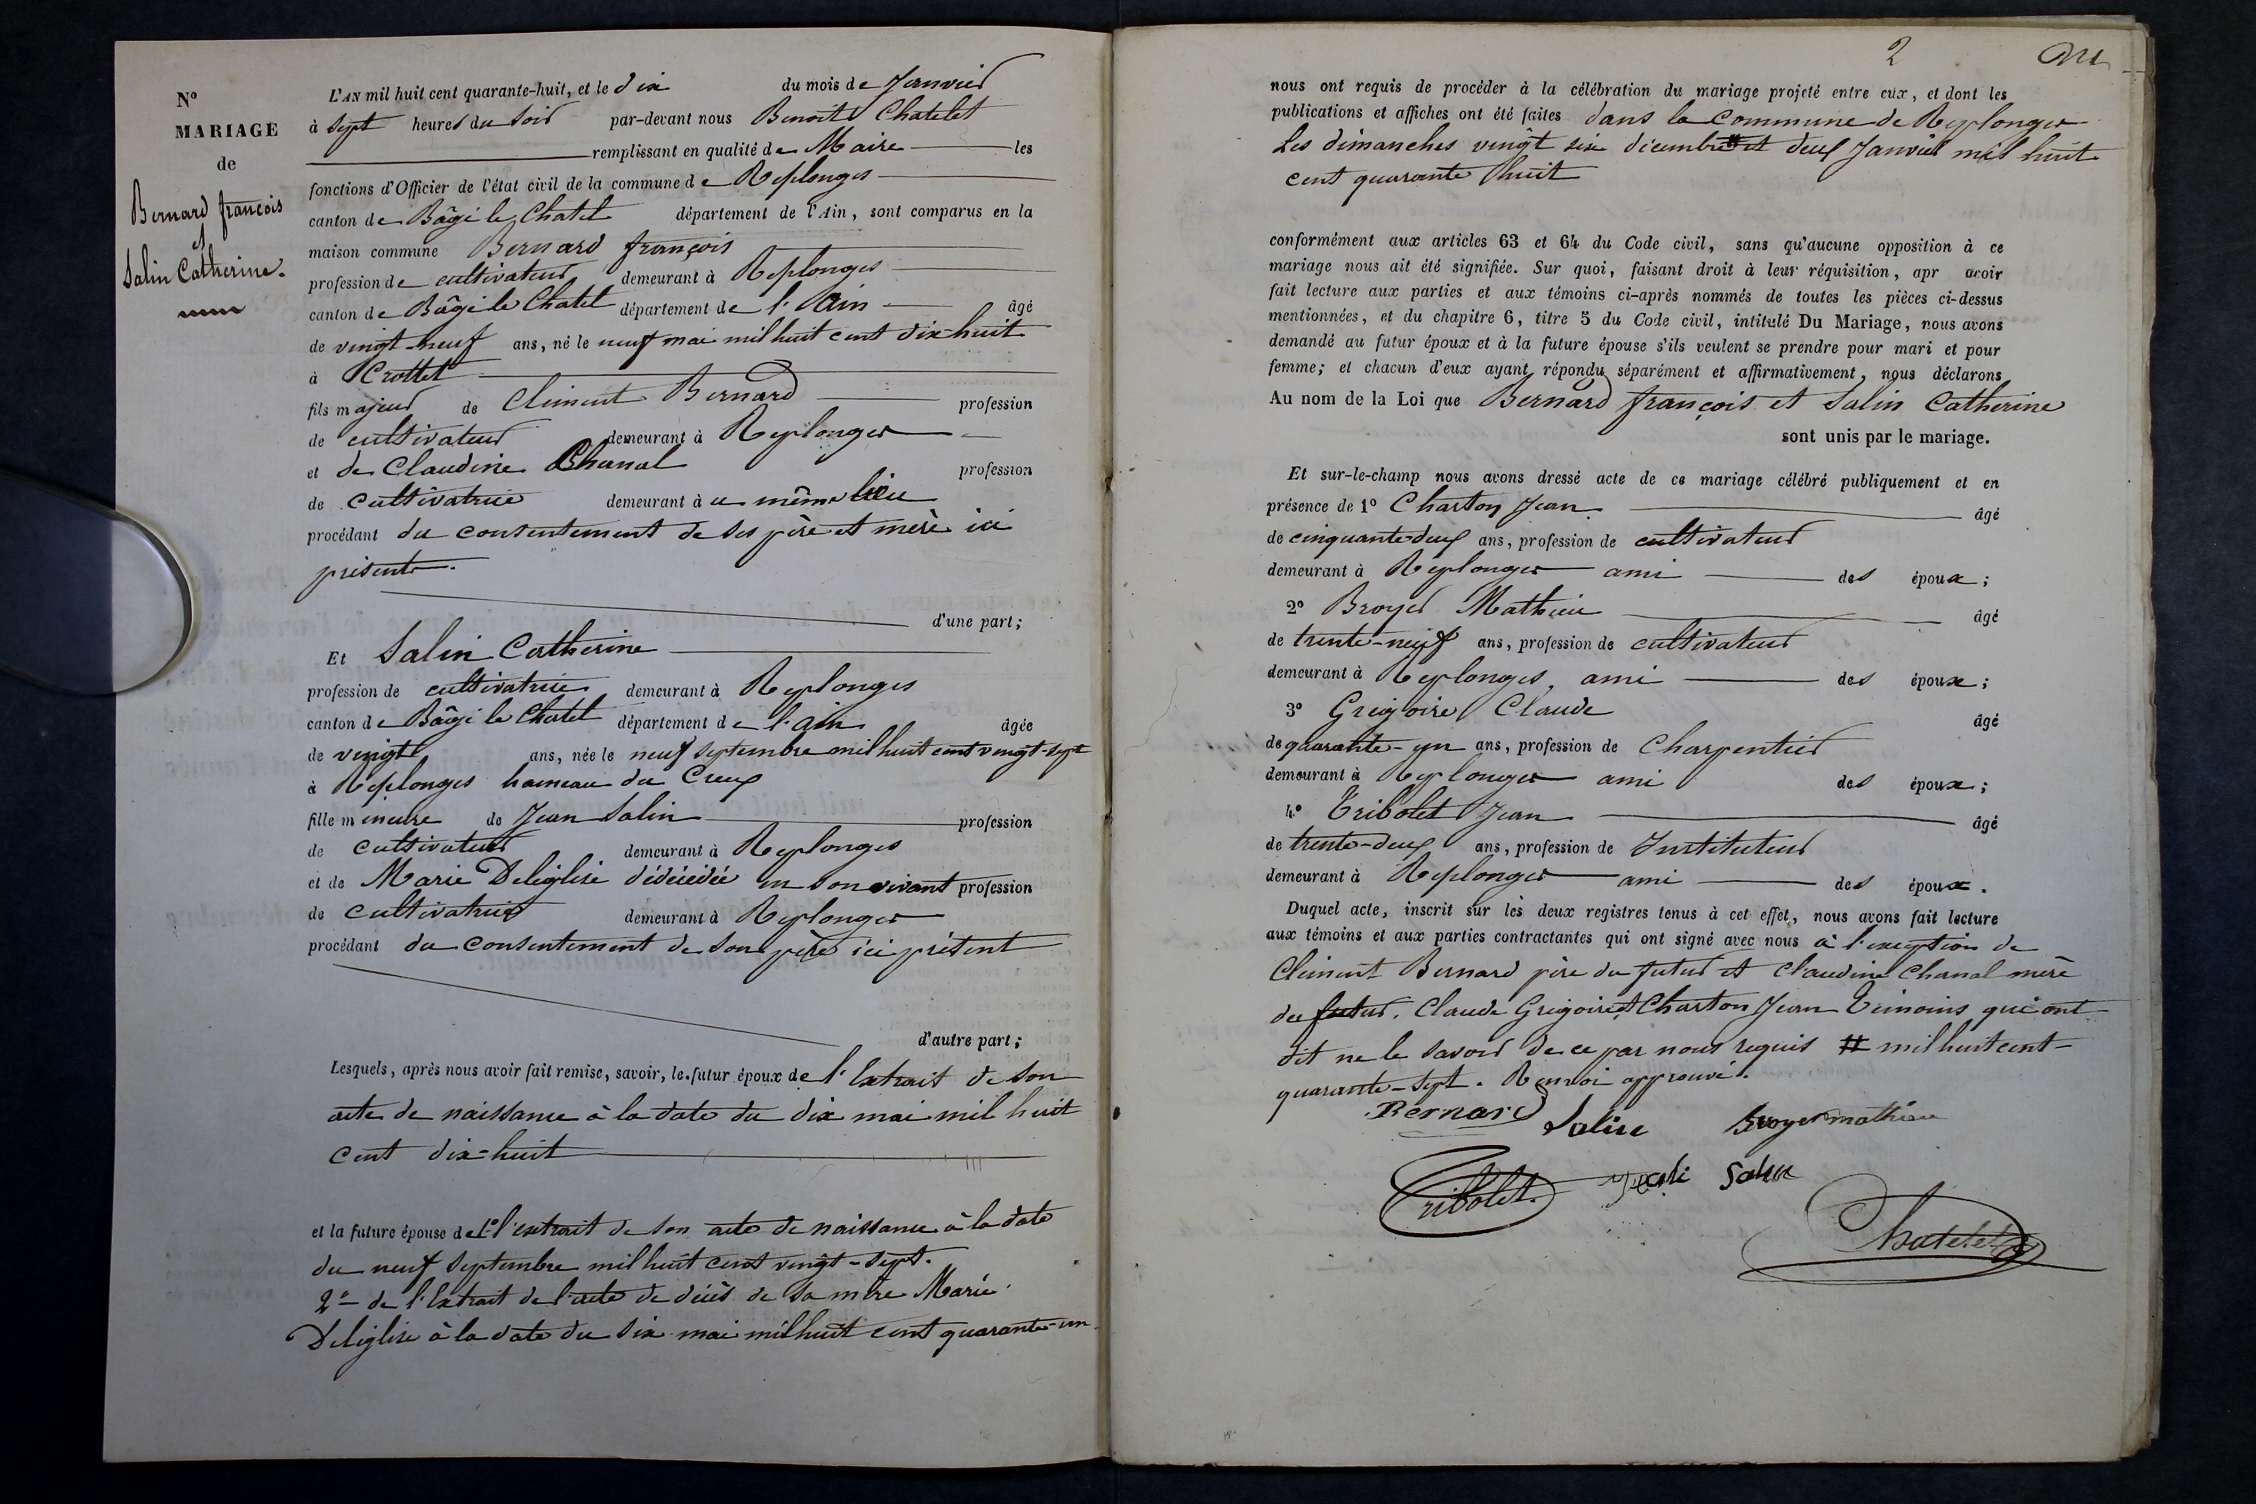 N°
MARIAGE
de
Bernard françois
et
Salin Catherine.
L'AN mil huit cent quarante-huit, et le dix du mois de Janvier
à Sept heures du soir par-devant nous Benoît Chatelet
remplissant en qualité de Maire les
fonctions d'Officier de l'état civil de la commune de Replonges
canton de Bâgé le Chatel département de l'Ain, sont comparus en la
maison commune Bernard françois
profession de cultivateur demeurant à Replonges
canton de Bâgé le Chatel département de l'Ain âgé
de vingt-neuf ans, né le neuf mai mil huit cent dix-huit
à Crottet
fils majeur de Clément Bernard profession
de cultivateur demeurant à Replonges
et de Claudine Chanal profession
de cultivatrice demeurant à ce même lieu
procédant du consentement de ses père et mère ici
présents.
d'une part;
Et Salin Catherine
profession de cultivatrice demeurant à Replonges
canton de Bâgé le Chatel département de l'ain âgée
de vingt ans, née le neuf septembre mil huit cent vingt-sept
à Replonges hameau du Creux
fille mineure de Jean Salin profession
de cultivateur demeurant à Replonges
et de Marie Deléglise décédée en son vivant profession
de cultivatrice demeurant à Replonges
procédant du consentement de son père ici présent
d'autre part;
Lesquels, après nous avoir fait remise, savoir, le futur époux de l'Extrait de son
acte de naissance à la date du dix mai mil huit
cent dix-huit
et la future épouse de 1° l'extrait de son acte de naissance à la date
du neuf Septembre mil huit cent vingt-sept.
2° de l'Extrait de l'acte de décès de sa mère Marie
Deléglise à la date du six mai mil huit cent quarante-un.
2
nous ont requis de procéder à la célébration du mariage projeté entre eux, et dont les
publications et affiches ont été faites dans la commune de Replonges
Les dimanches vingt six décembre # et deux Janvier mil huit
cent quarante huit
conformément aux articles 63 et 64 du Code civil, sans qu'aucune opposition à ce
mariage nous ait été signifiée. Sur quoi, faisant droit à leur réquisition, apr avoir
fait lecture aux parties et aux témoins ci-après nommés de toutes les pièces ci-dessus
mentionnées, et du chapitre 6, titre 5 du Code civil, intitulé Du Mariage, nous avons
demandé au futur époux et à la future épouse s'ils veulent se prendre pour mari et pour
femme; et chacun d'eux ayant répondu séparément et affirmativement, nous déclarons
Au nom de la Loi que Bernard françois et Salin Catherine
sont unis par le mariage.
Et sur-le-champ nous avons dressé acte de ce mariage célébré publiquement et en
présence de 1° Charton Jean âgé
de cinquante-deux ans, profession de cultivateur
demeurant à Replonges ami des époux;
2° Broyer Mathieu âgé
de trente-neuf ans, profession de cultivateur
demeurant à Replonges, ami des époux;
3° Grégoire Claude âgé
de quarante-un ans, profession de Charpentier
demeurant à Replonges ami des époux;
4° Tribolet Jean âgé
de trente-deux ans, profession de Instituteur
demeurant à Replonges ami des époux.
Duquel acte, inscrit sur les deux registres tenus à cet effet, nous avons fait lecture
aux témoins et aux parties contractantes qui ont signé avec nous à l'exception de
Clément Bernard père du futur et Claudine Chanal mère
du futur, Claude Grégoire et Charton Jean témoins qui ont
dit ne le savoir de ce par nous requis # mil huit cent
quarante-sept. Renvoi approuvé.
Bernard Salin Broyer mathieu
Tribolet. Salin
Chatelet